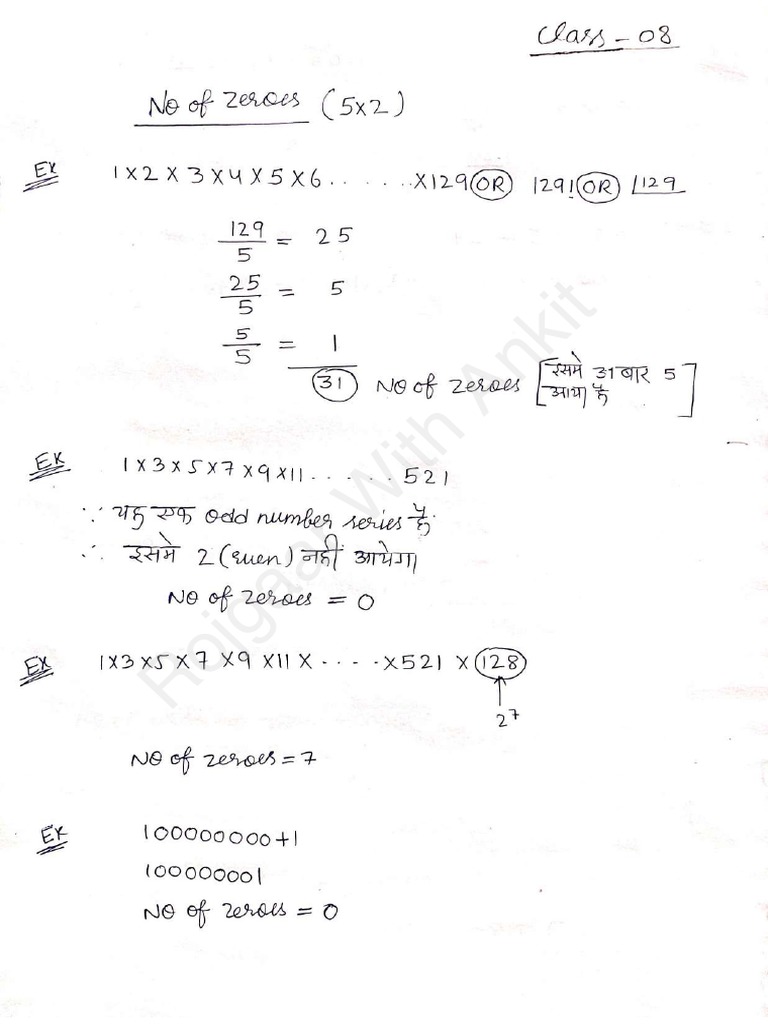 Class - 08
No of zeroes (5x2)
Ex 1x2x3x4x5x6.......x129 OR 129! OR ⌊129
129/5 = 25
25/5 = 5
5/5 = 1
31 No of zeroes [इसमे 31 बार 5
आया है]
Ex 1x3x5x7x9x11......521
∵ यह एक odd number series है
∴ इसमे 2 (even) नहीं आयेगा
No of zeroes = 0
Ex 1x3x5x7x9x11x.....x521x128
2⁷
No of zeroes = 7
Ex 100000000+1
100000001
No of zeroes = 0
Rojgaar With Ankit